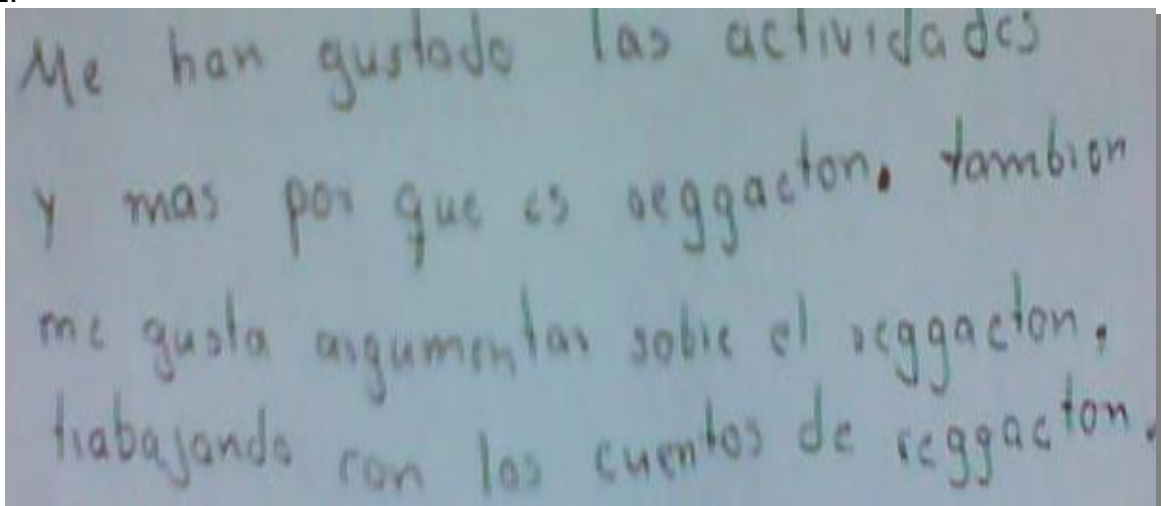 Me han gustado las actividades
y mas por que es reggaeton. tambien
me gusta argumentar sobre el reggaeton.
trabajando con los cuentos de reggaeton.